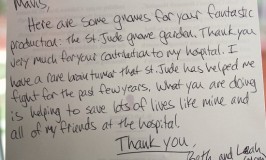 Mavis,
Here are some gnomes for your fantastic
production: the St. Jude gnome garden. Thank you
very much for your contribution to my hospital. I
have a rare brain tumor that St. Jude has helped me
fight for the past few years. What you are doing
is helping to save lots of lives like mine and
all of my friends at the hospital.
Thank you,
Beth and Leah